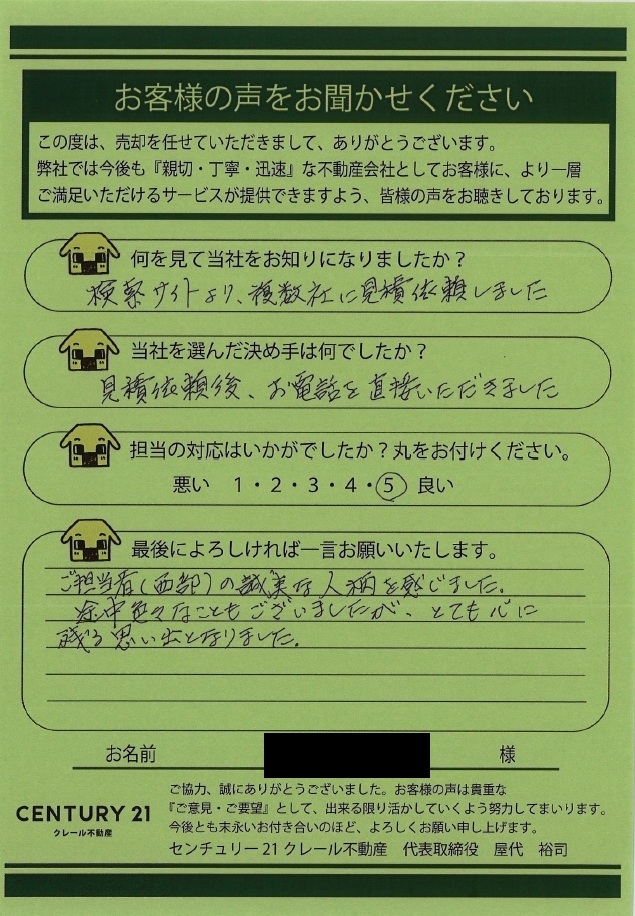 お客様の声をお聞かせください
この度は、売却を任せていただきまして、ありがとうございます。
弊社では今後も『親切・丁寧・迅速』な不動産会社としてお客様に、より一層
ご満足いただけるサービスが提供できますよう、皆様の声をお聴きしております。
何を見て当社をお知りになりましたか？
検索サイトより、複数社に見積依頼しました
当社を選んだ決め手は何でしたか？
見積依頼後、お電話を直接いただきました
担当の対応はいかがでしたか？丸をお付けください。
悪い 1・2・3・4・5 良い
最後によろしければ一言お願いいたします。
ご担当者(西部)の誠実な人柄を感じました。
途中色々なこともございましたが、とても心に
残る思い出となりました。
お名前 様
ご協力、誠にありがとうございました。お客様の声は貴重な
『ご意見・ご要望』として、出来る限り活かしていくよう努力してまいります。
今後とも末永いお付き合いのほど、よろしくお願い申し上げます。
CENTURY 21
クレール不動産
センチュリー21クレール不動産 代表取締役 屋代 裕司